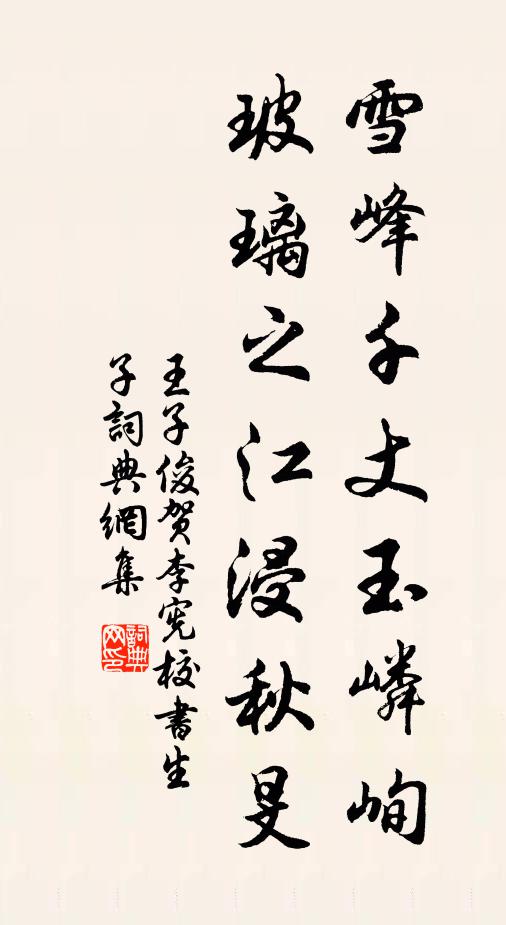 雪峰千丈玉嶙峋
玻璃之江浸秋旻
王子俊贺李宪校書生
子詞典網集
詞典網印